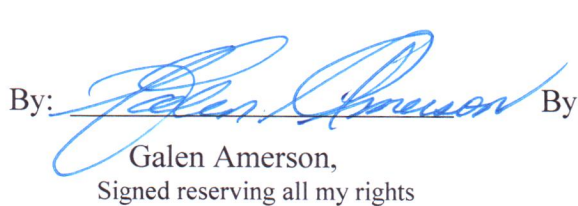 By: Galen Amerson By
Galen Amerson,
Signed reserving all my rights